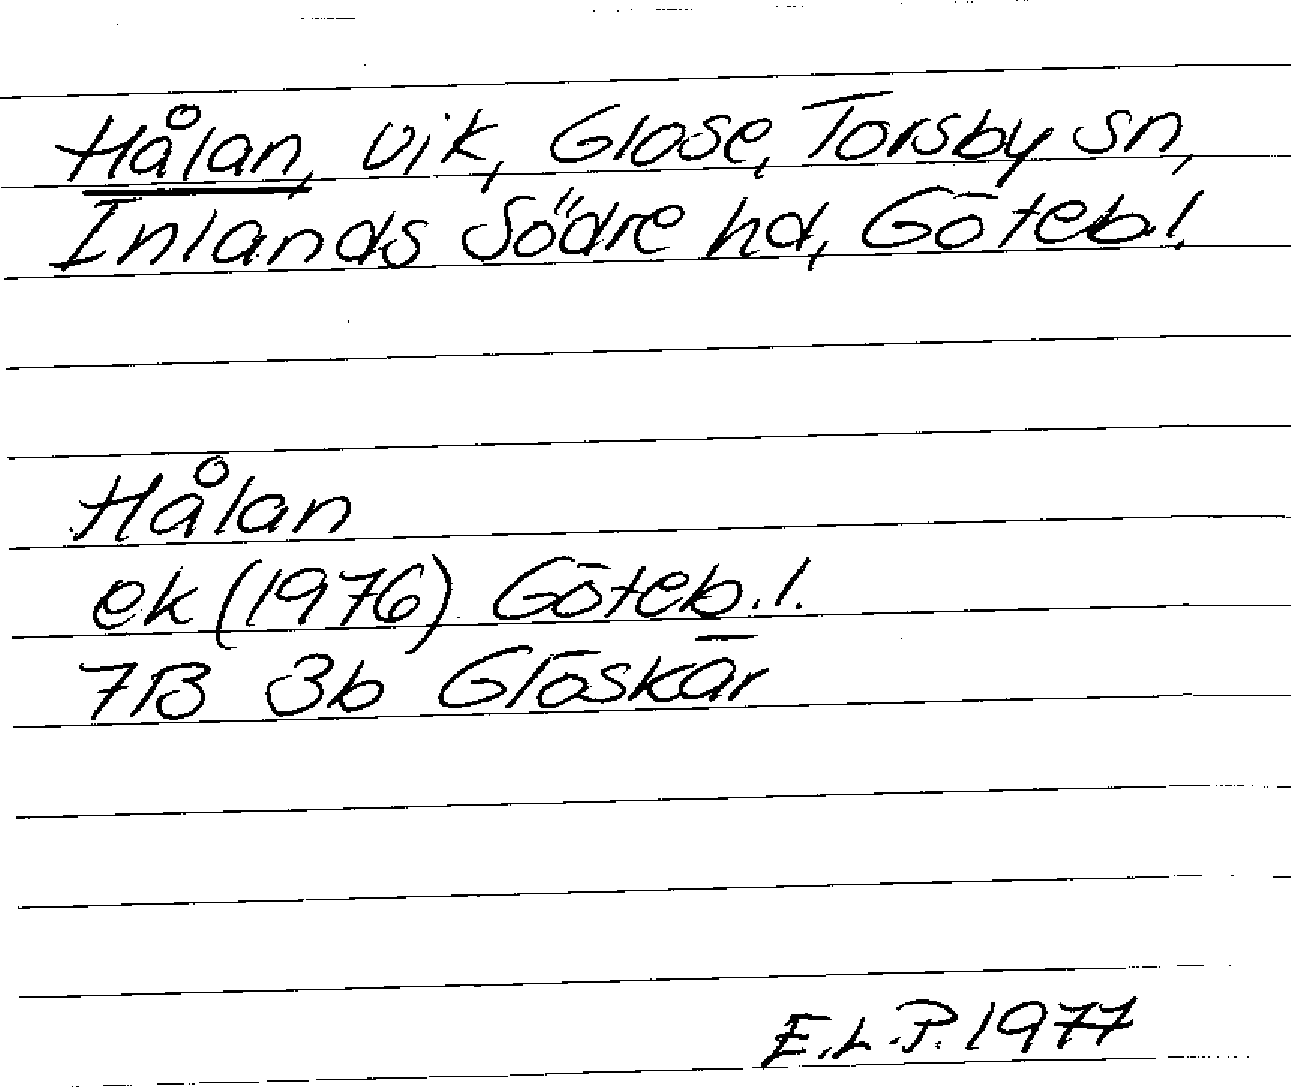 Hålan, vik, Glose, Torsby sn,
Inlands Södre hd, Göteb.l.
Hålan
ek (1976) Göteb.l.
7B 3b Glöskär
E.L.P. 1977